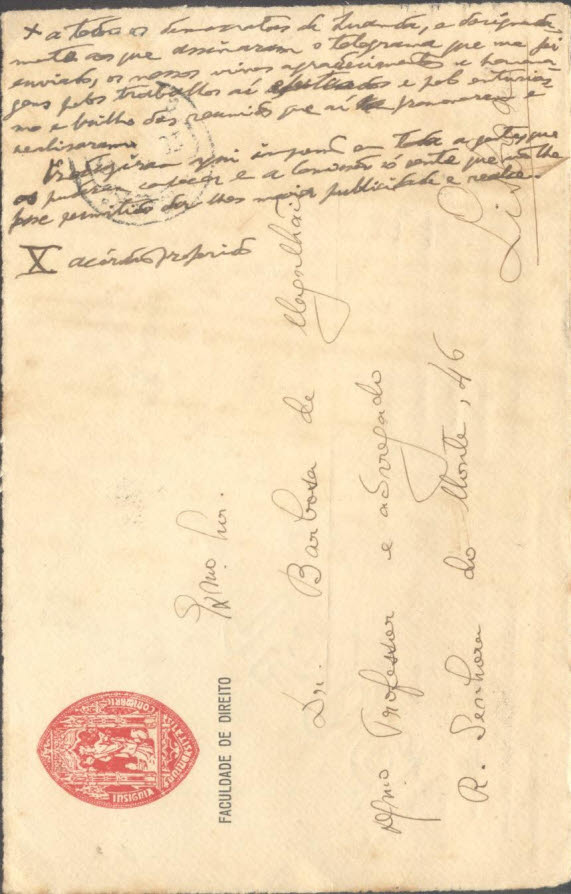 x a todos os democratas de Luanda, e designada
mente aos que assinaram o telegrama que me foi
enviado, os nossos vivos agradecimentos e homena
gens pelos trabalhos aí efetuados e pelo entusias
mo e brilho das reuniões que aí promoveram e
realisaram
a toda a gente que
os e a Comissão só sente que não lhe
fosse permitido dar-lhes maior publicidade e realce
X
FACULDADE DE DIREITO
Exmo. Snr.
Dr. Barbosa de Magalhães
Dgmo Professor e advogado
R. Senhora do Monte, 46
Lisboa
INSIGNIA VNIVERSITATIS CONIMBRIG